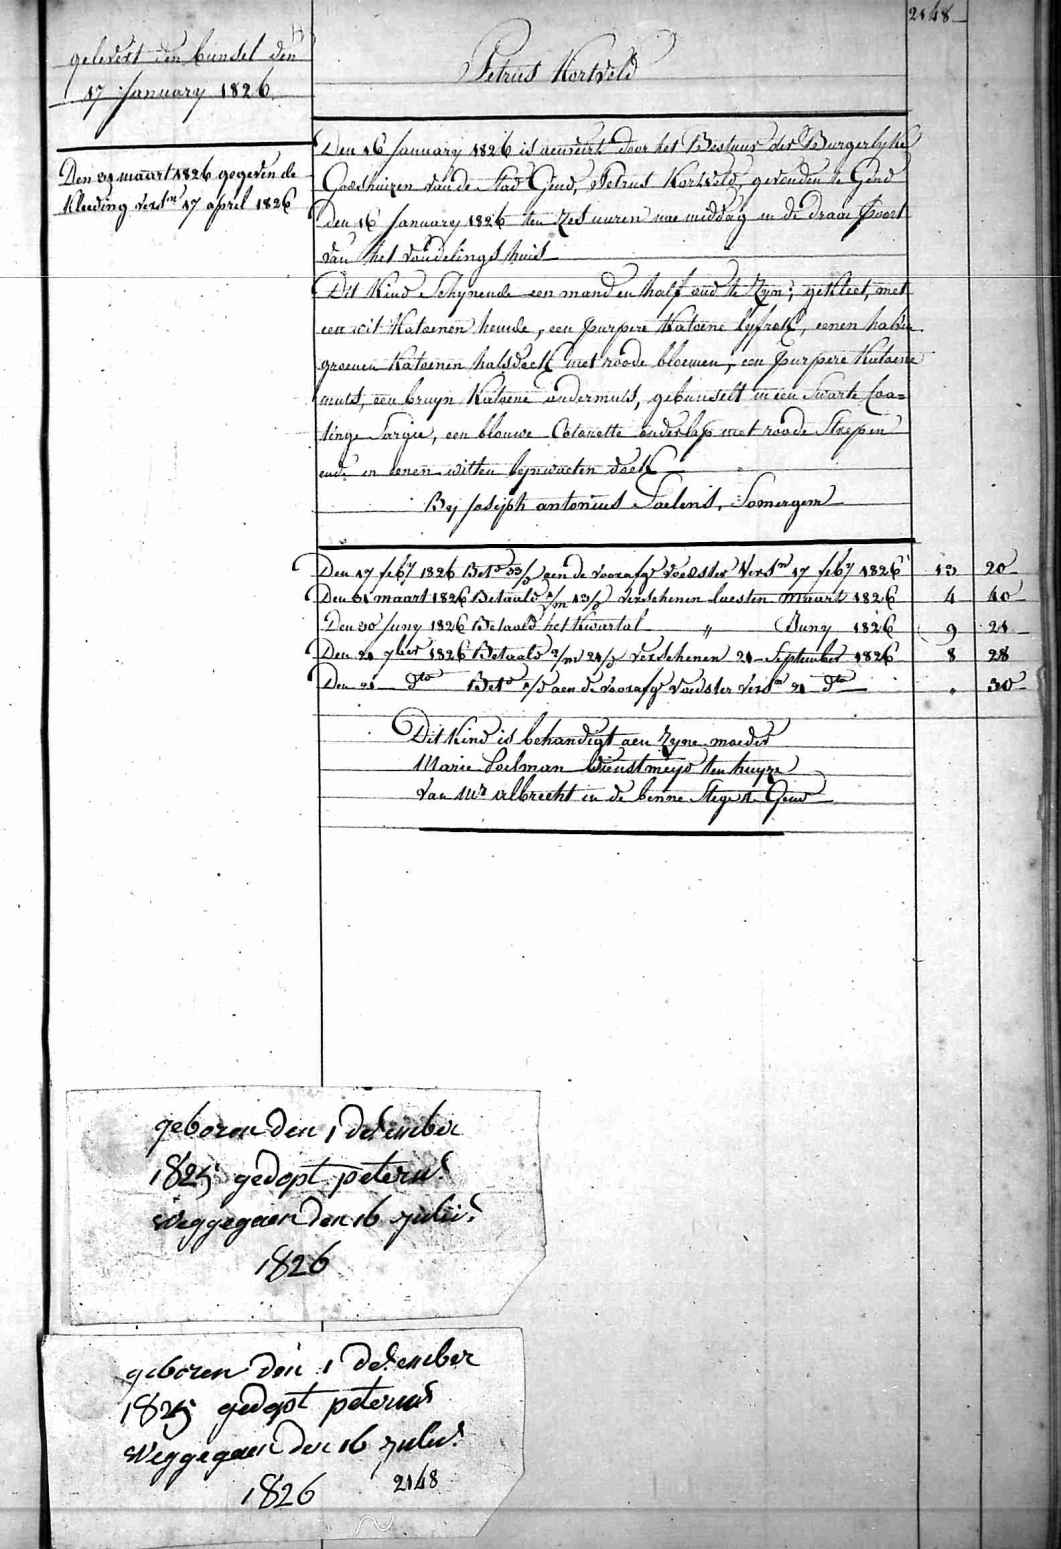 2148
gelevert den bunsel den
17 January 1826
Petrus Kortveld
Den 31 maart 1826 gegeven de
Kleeding versn 17 april 1826
Den 16 January 1826 is aenveirt door het Bestuur der Burgerlyke
Godshuizen van de Stad Gend, Petrus Kortveld, gevonden te Gend
den 16 January 1826 ten zes uuren nae middag in de draai Poort
van het vondelings huis
Dit Kind Schynende een mand en half oud te Zyn; gekleet, met
een wit Katoenen hemde, een purpere Katoene lyfrok, eenen halven
groenen Katoenen halsdoek met roode bloemen, een purpere Katoene
muts, een bruyn Katoene ondermuts, gebunselt in een Swarte Caa=
tinge Sargie, een blouwe Cotonette onderlap met roode Strepen
ende en eenen witten lynwaeten doek
By Joseph antonius Saelens, Somergem
Den 17 feby 1826 Beto 33/ aen de voorafge voedster versn 17 feby 1826 13 20
Den 31 maart 1826 Betaald /m 13/ verschenen laesten maart 1826 4 40
Den 30 Juny 1826 Betaald het kwartal " Juny 1826 9 21
Den 21 7ber 1826 Betaald 2/m 21/ verschenen 21 September 1826 8 28
Den 21 dto Beto aen de voorafge voedster versn 21 dto . 30
Dit Kind is behandigt aen Zyne moeder
Marie Poelman dienstmeyd ten huyze
van Mr albrecht in de benne Stege te Gend
geboren den 1 december
1825 gedopt peterus
weggegaen den 16 julii
1826
geboren den 1 december
1825 gedopt peterus
weggegaen den 16 julii
1826 2148